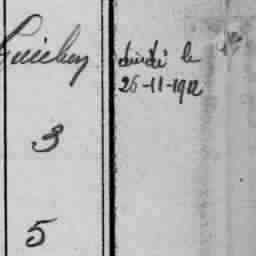 Guichen
décédé le
26-11-1912
3
5